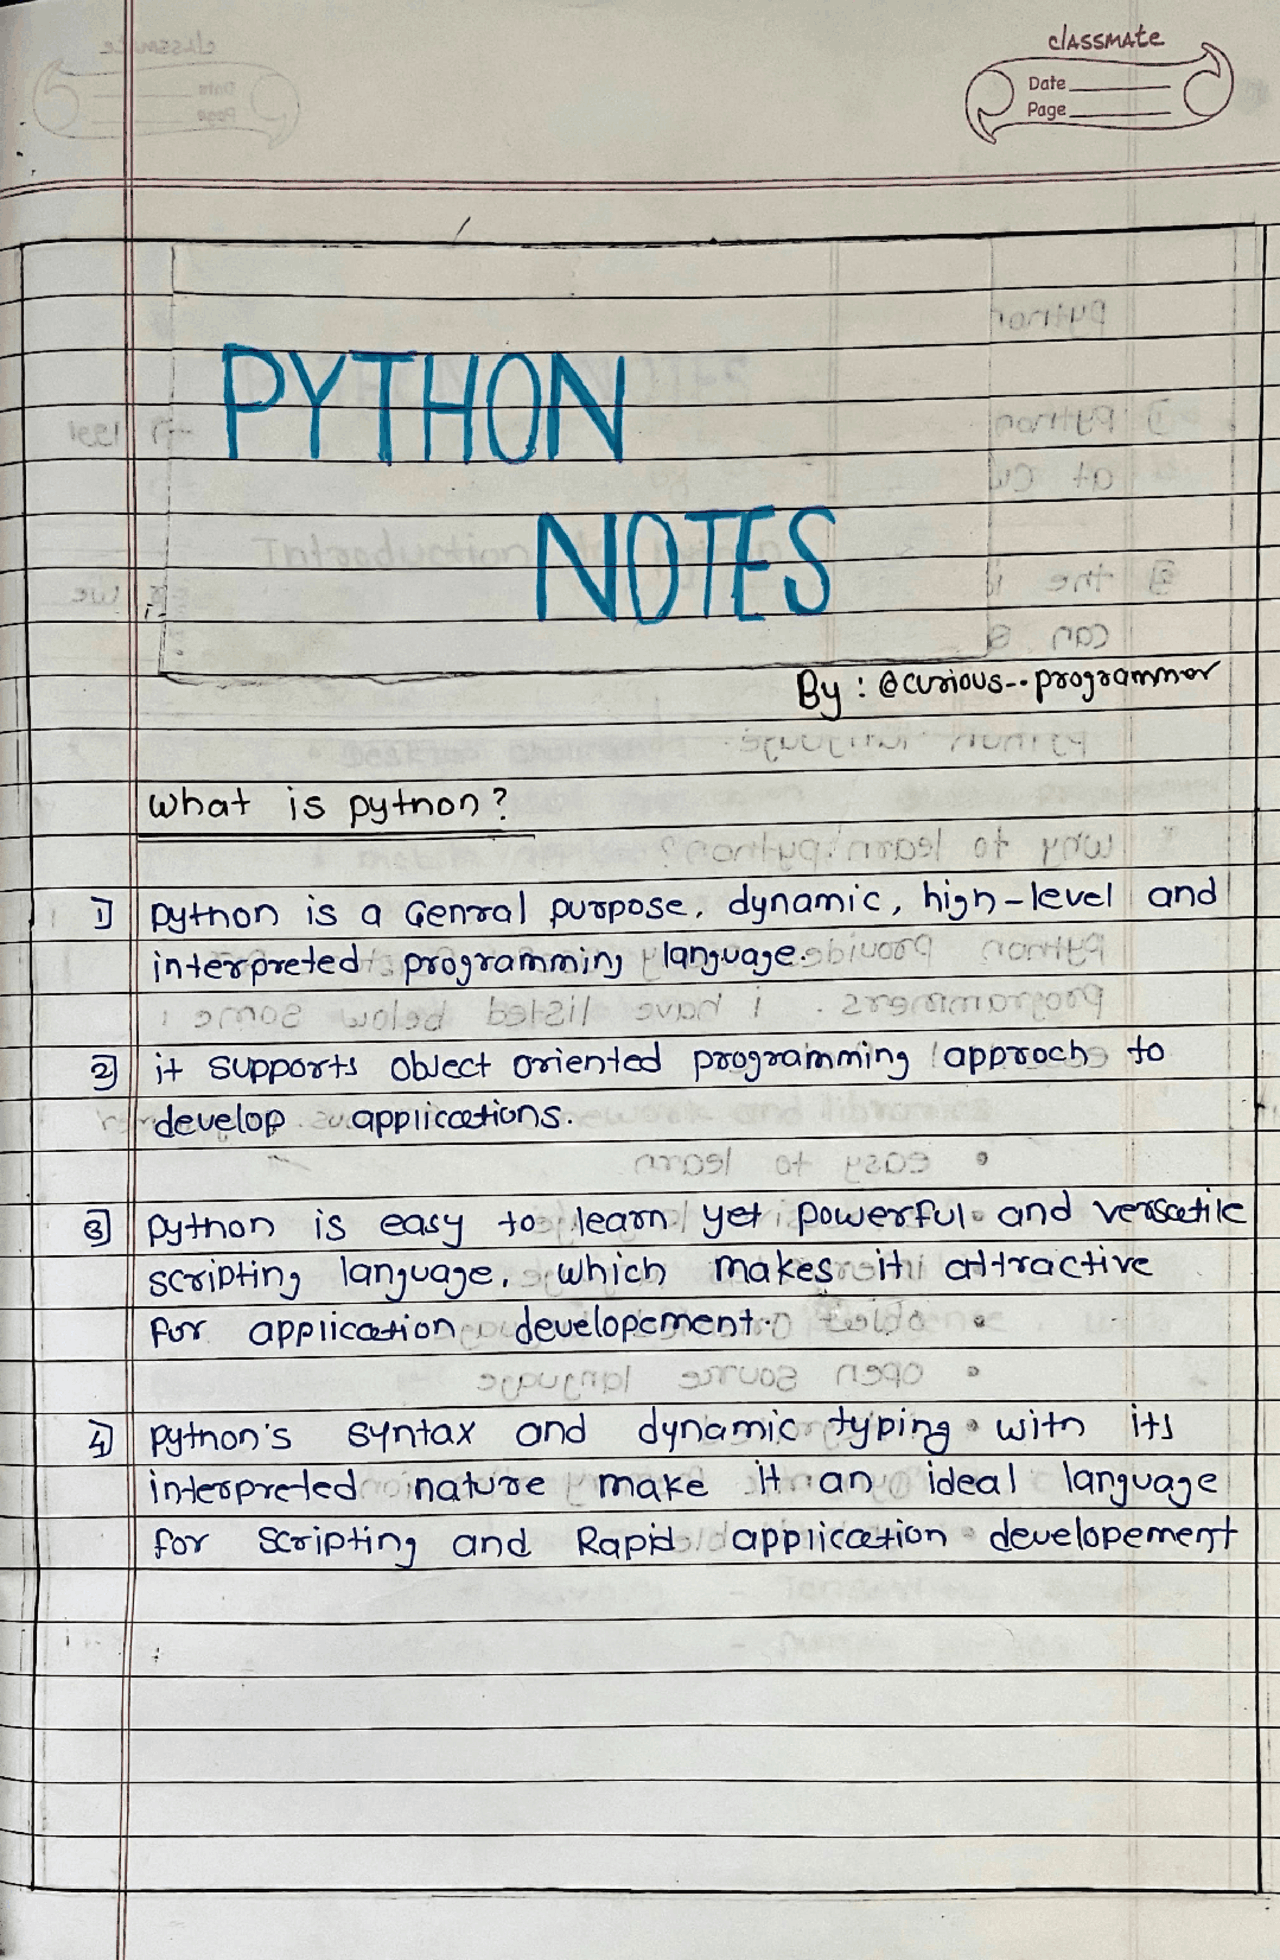 classmate
Date
Page
PYTHON
NOTES
By : @curious--programmer
what is python?
1) python is a Genral purpose, dynamic, high-level and
interpreted programming language.
2) it supports object oriented programming approch to
develop applications.
3) python is easy to learn yet powerful and versatile
scripting language, which makes it attractive
for application developement.
4) python's syntax and dynamic typing with its
interpreted nature make it an ideal language
for scripting and Rapid application developement